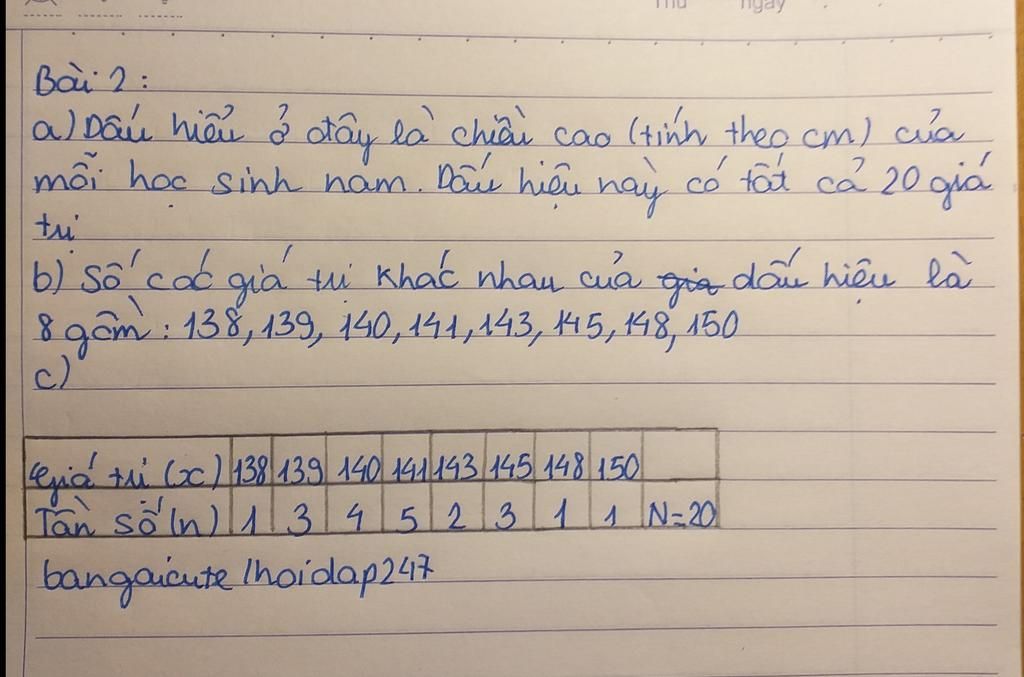 Thứ ngày
Bài 2:
a) Dấu hiểu ở đây là chiều cao (tính theo cm) của
mỗi học sinh nam. Dấu hiệu này có tất cả 20 giá
trị
b) Số các giá trị khác nhau của gia dấu hiệu là
8 gồm: 138, 139, 140, 141, 143, 145, 148, 150
c)
Giá trị (x) 138 139 140 141 143 145 148 150
Tần số (n) 1 3 4 5 2 3 1 1 N=20
bangaicute / hoidap247